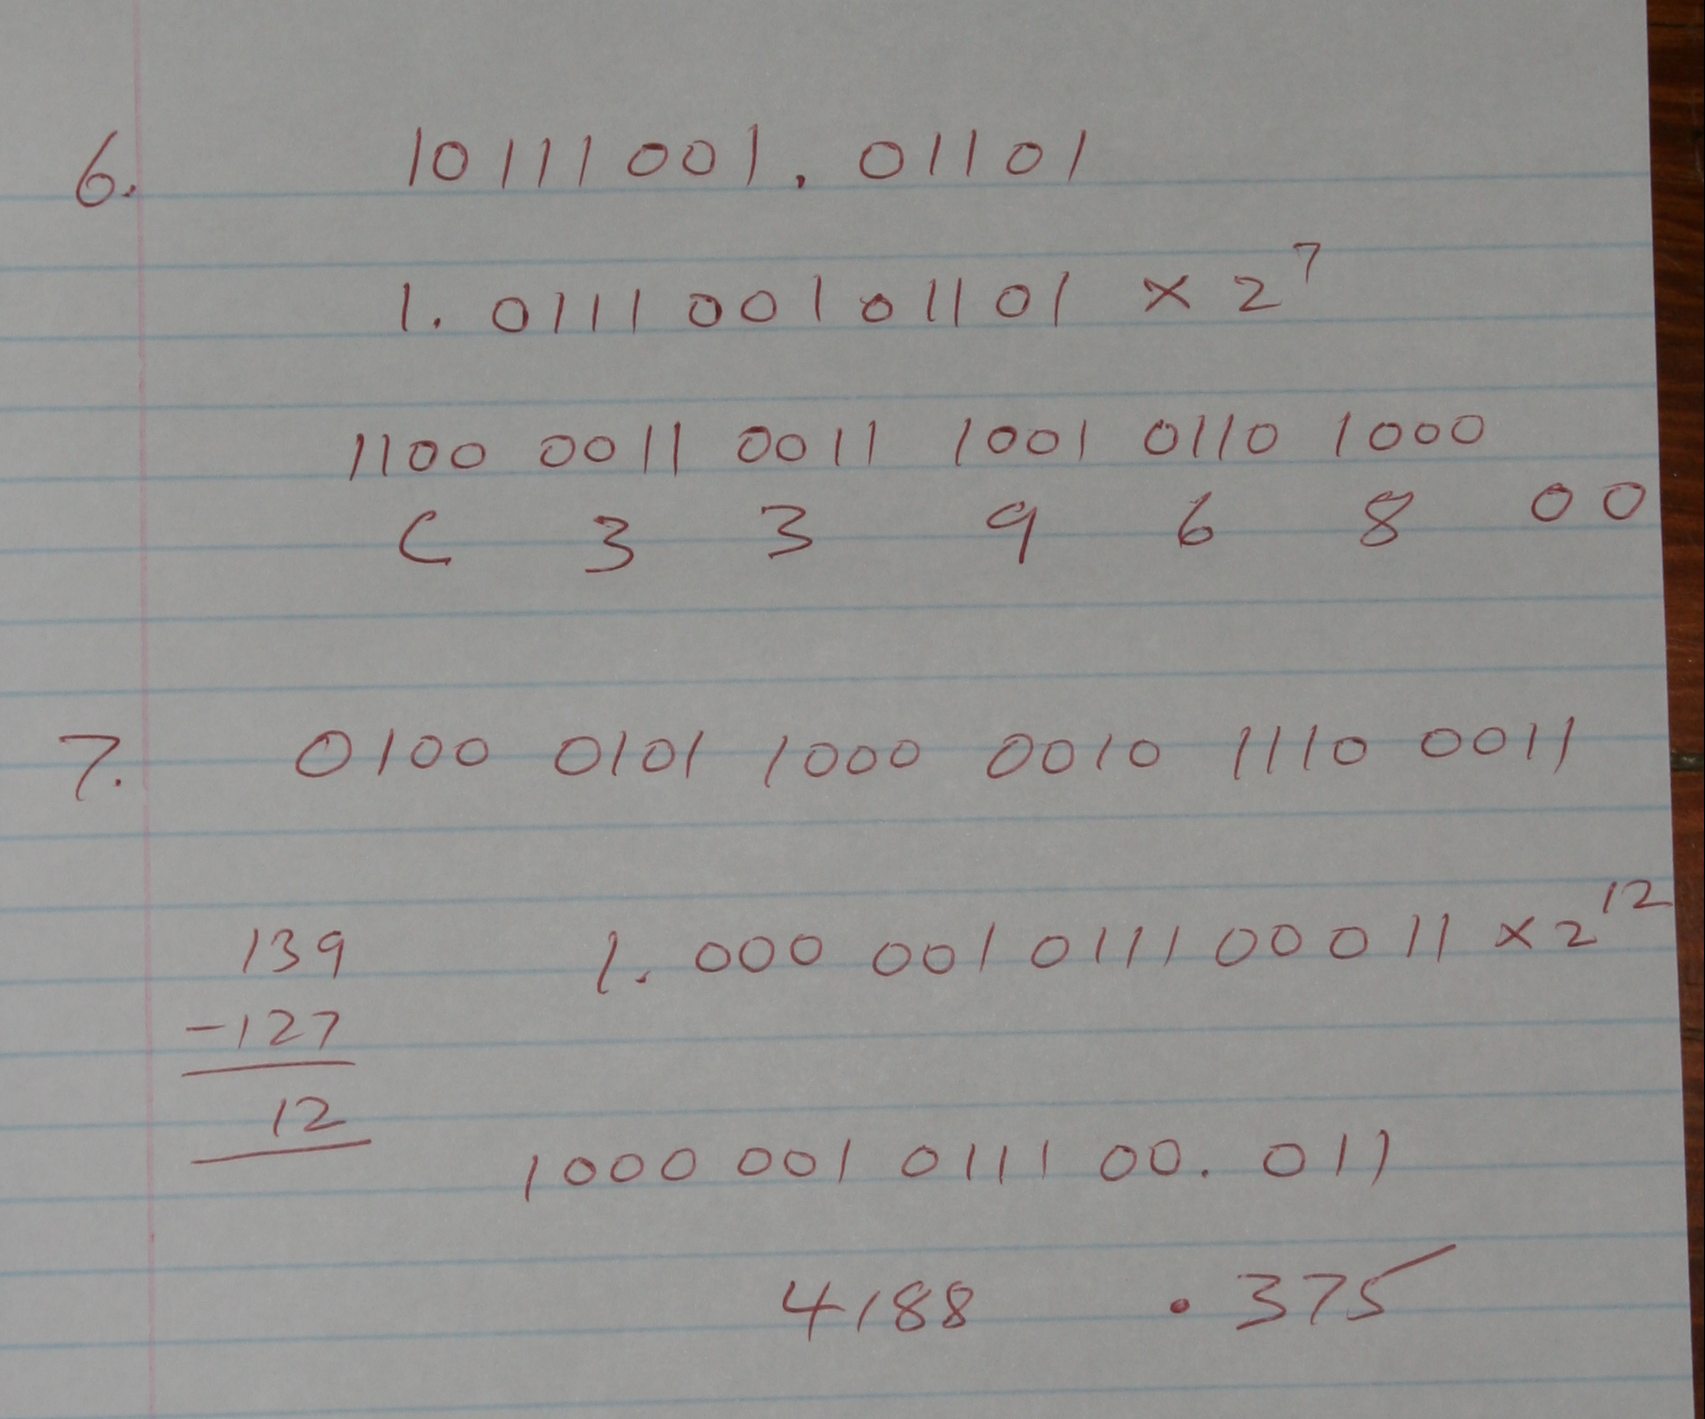 6. 10111001.01101
1.011100101101 × 2⁷
1100 0011 0011 1001 0110 1000
C 3 3 9 6 8 00
7. 0100 0101 1000 0010 1110 0011
139 1.000 001 0111 000 11 × 2¹²
-127
12
1000 001 0111 00.011
4188 .375